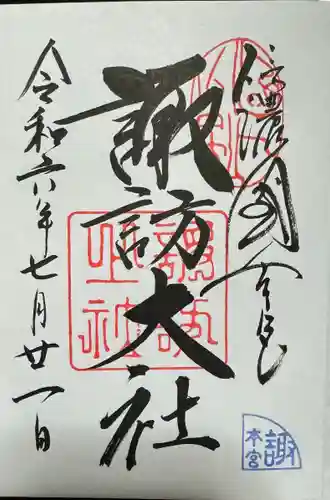 信濃國一宮
諏訪大社
令和六年七月廿一日
諏訪
大社
諏
本宮